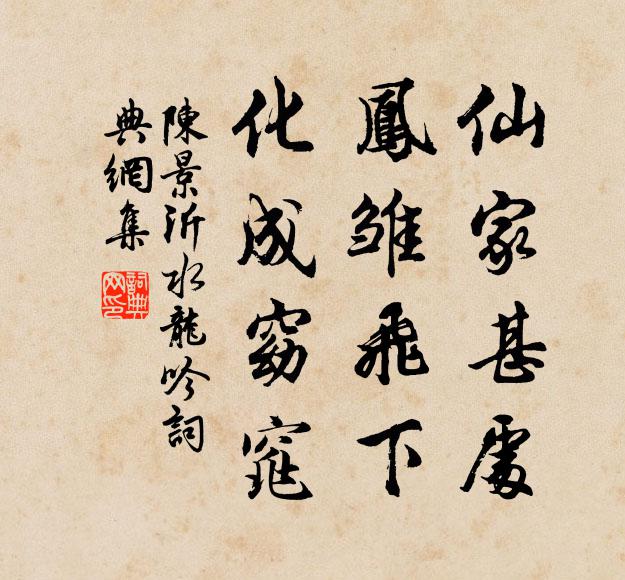 仙家甚處
鳳雏飛下
化成窈窕
陳景沂水龍吟詞
典網集
詞典网印